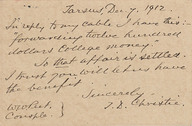 Tarsus, Dec 7, 1912.
In reply to my cable I have this:
"forwarding twelve hundred
dollars College money."
So that affair is settled.
I trust you will let us have
the benefit
Sincerely,
T. D. Christie.
W. W. Peet,
Constple.